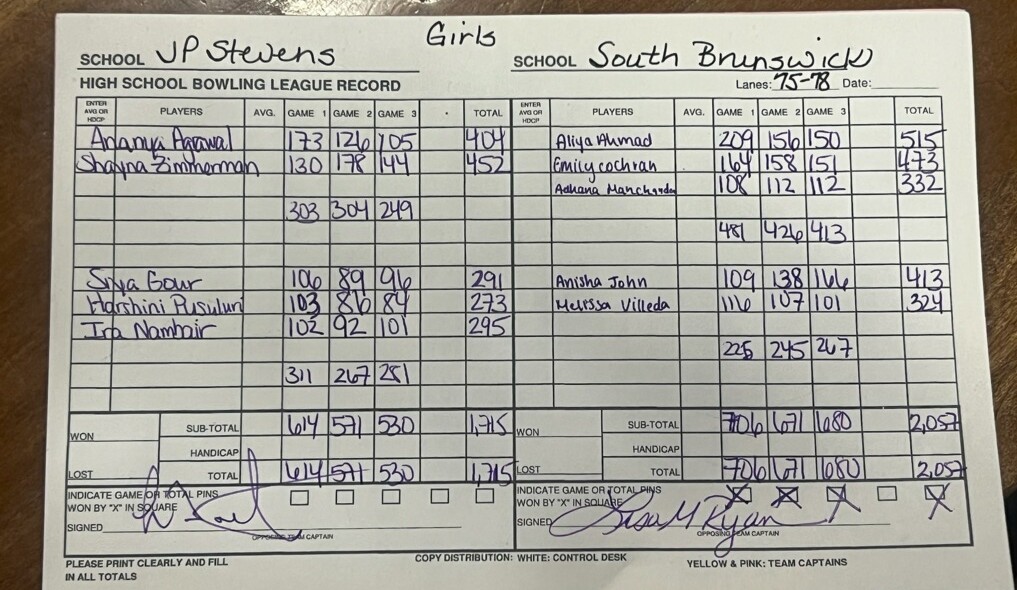 Girls
SCHOOL JP Stevens SCHOOL South Brunswick
HIGH SCHOOL BOWLING LEAGUE RECORD Lanes: 75-78 Date:
ENTER AVG OR HDCP PLAYERS AVG. GAME 1 GAME 2 GAME 3 TOTAL ENTER AVG OR HDCP PLAYERS AVG. GAME 1 GAME 2 GAME 3 TOTAL
Ananya Agrawal 173 126 105 404 Aliya Ahmad 209 156 150 515
Shayna Zimmerman 130 178 144 452 Emily cochran 164 158 151 473
Adhana Manchanda 108 112 112 332
303 304 249
481 426 413
Siya Gour 106 89 96 291 Anisha John 109 138 166 413
Harshini Pusuluri 103 86 84 273 Melissa Villeda 116 107 101 324
Ira Nambair 102 92 101 295
225 245 267
311 267 281
WON SUB-TOTAL 614 571 530 1,715 WON SUB-TOTAL 706 671 680 2,057
HANDICAP HANDICAP
LOST TOTAL 614 571 530 1,715 LOST TOTAL 706 671 680 2,057
INDICATE GAME OR TOTAL PINS INDICATE GAME OR TOTAL PINS
WON BY "X" IN SQUARE WON BY "X" IN SQUARE X X X X
SIGNED SIGNED Lisa M Ryan
OPPOSING TEAM CAPTAIN OPPOSING TEAM CAPTAIN
PLEASE PRINT CLEARLY AND FILL COPY DISTRIBUTION: WHITE: CONTROL DESK YELLOW & PINK: TEAM CAPTAINS
IN ALL TOTALS